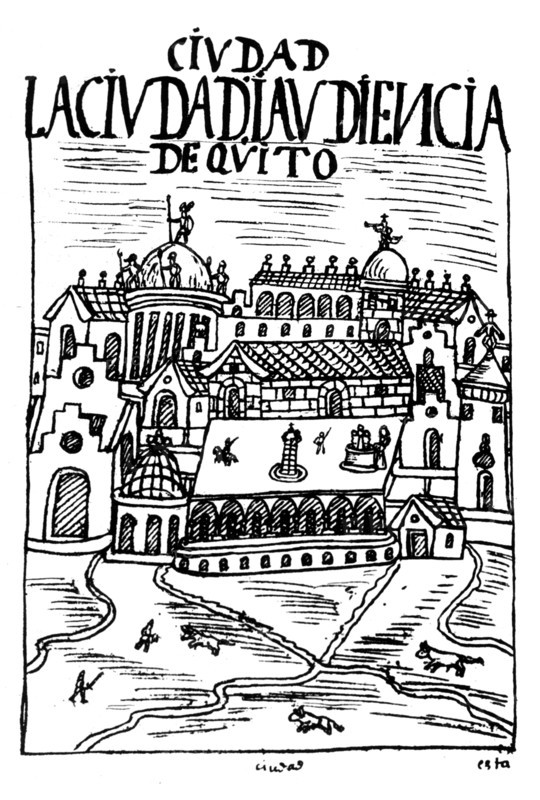 CIVDAD
LACIVDADIAVDIENCIA
DE QVITO
ciudad
esta